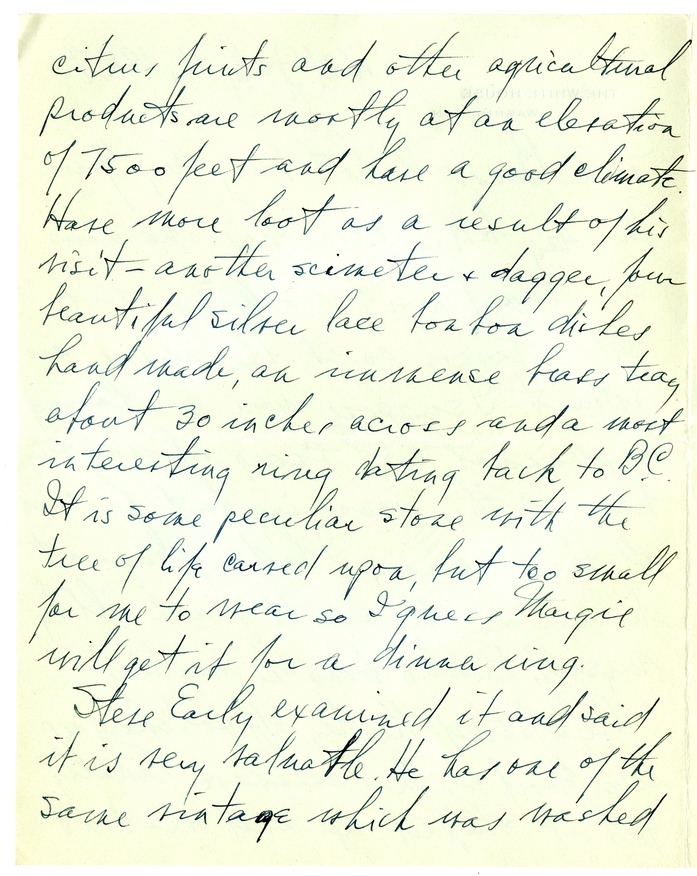 citrus fruits and other agricultural
products are mostly at an elevation
of 7500 feet and have a good climate.
Have more loot as a result of his
visit – another scimeter + dagger, four
beautiful silver lace bon bon dishes
hand made, an immense brass tray
about 30 inches across and a most
interesting ring dating back to B.C.
It is some peculiar stone with the
tree of life carved upon, but too small
for me to wear so I guess Margie
will get it for a dinner ring.
Steve Early examined it and said
it is very valuable. He has one of the
same vintage which was washed